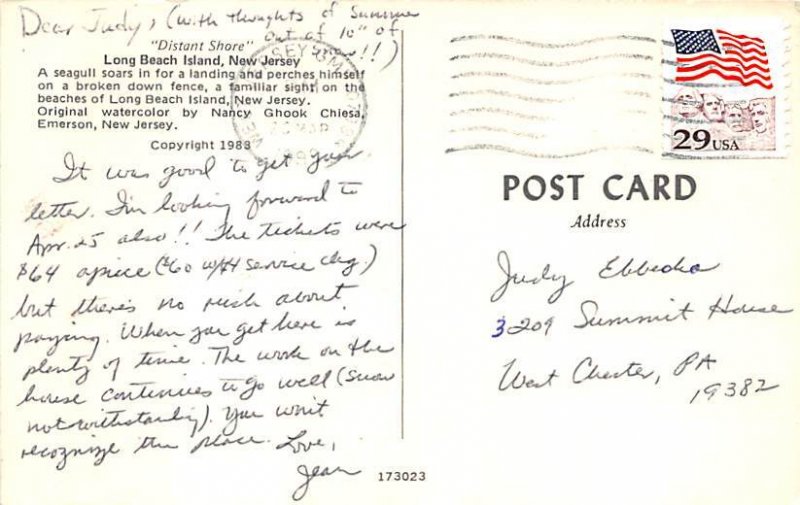 Dear Judy, (with thoughts of Summer
out of 10" of
snow!!)
"Distant Shore"
Long Beach Island, New Jersey
A seagull soars in for a landing and perches himself
on a broken down fence, a familiar sight on the
beaches of Long Beach Island, New Jersey.
Original watercolor by Nancy Ghook Chiesa,
Emerson, New Jersey.
Copyright 1983
It was good to get your
letter. I'm looking forward to
Apr. 25 also!! The tickets were
$64 apiece ($60 w/$4 service chg.)
but there's no rush about
paying. When you get here is
plenty of time. The work on the
house continues to go well (snow
notwithstanding). You won't
recognize the place. Love,
Jean
173023
29 USA
POST CARD
Address
Judy
3209 Summit House
West Chester, PA
19382